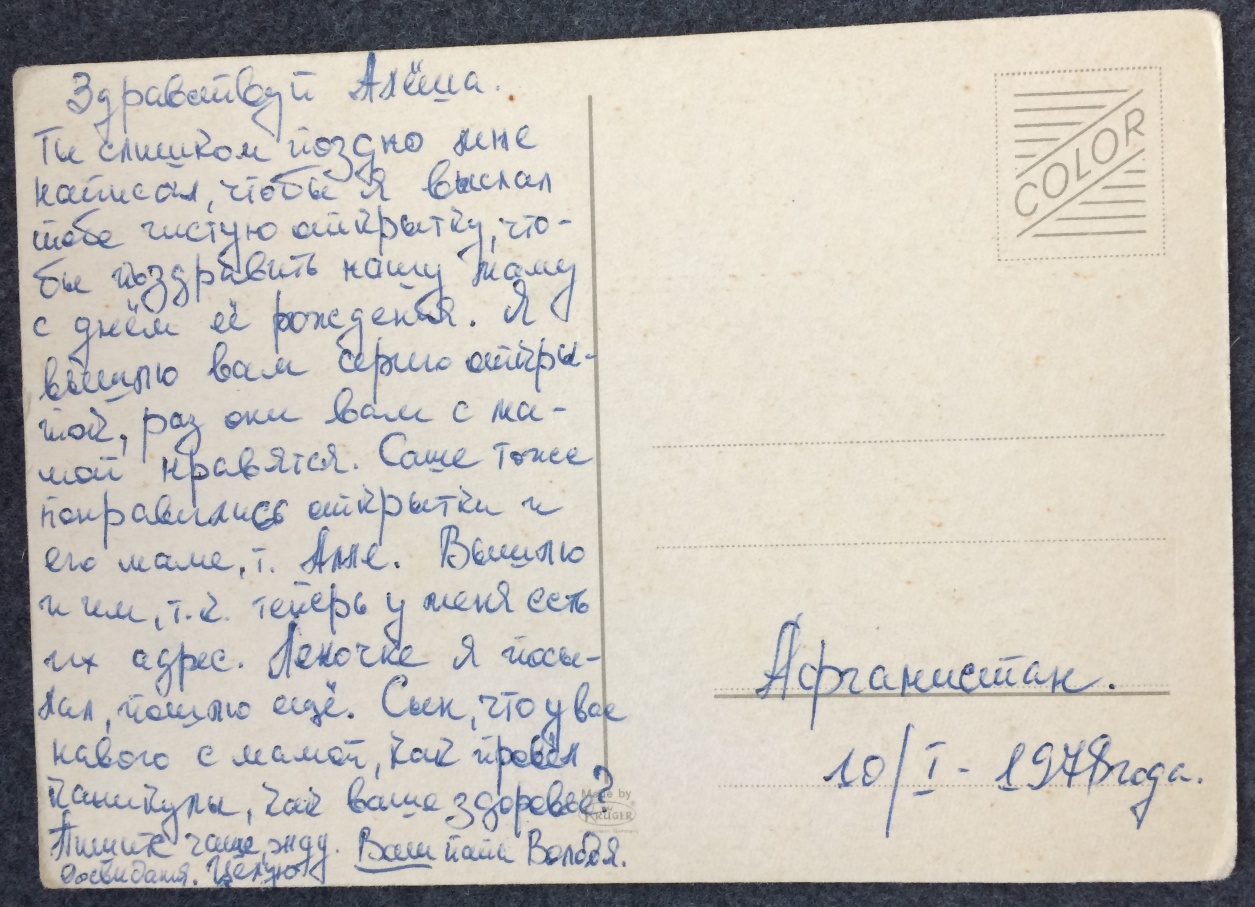 Здравствуй Алёша.
Ты слишком поздно мне
написал, чтобы я выслал
тебе чистую открытку, что-
бы поздравить нашу маму
с днём её рождения. Я
вышлю вам серию откры-
ток, раз они вам с ма-
мой нравятся. Саше тоже
понравились открытки и
его маме, т. Алле. Вышлю
и им, т.к. теперь у меня есть
их адрес. Леночке я посы-
лал, пошлю ещё. Сын, что у вас
нового с мамой, как провёл
каникулы, как ваше здоровье?
Пишите чаще, жду. Ваш папа Володя.
Досвидания. Целую
COLOR
Афганистан.
10/I - 1978 года.
Made by
KRÜGER